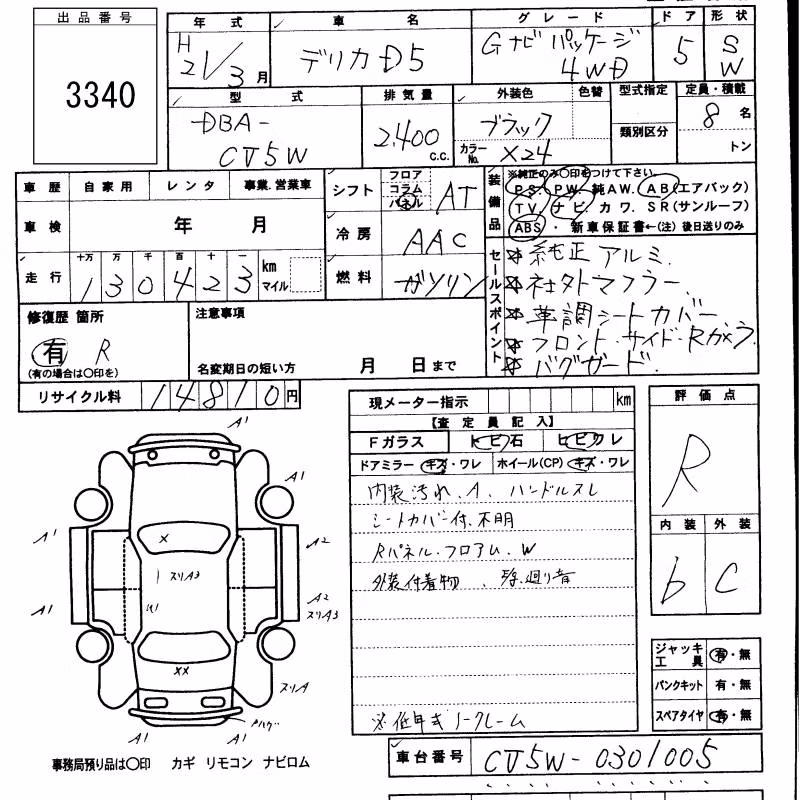 出品番号
3340
年式
H21/3月
車名
デリカD5
グレード
Gナビパッケージ
4WD
ドア
5
形状
SW
型式
DBA-
CV5W
排気量
2,400
c.c.
外装色
ブラック
色替
カラーNo. X24
型式指定
類別区分
定員・積載
8名
トン
車歴 自家用 レンタ 事業.営業車
車検 年 月
走行 十万 万 千 百 十 一
130423
km
マイル
シフト
フロア
コラム
パネル
AT
冷房 AAC
燃料 ガソリン
装備品
※純正のみ〇印をつけて下さい。
PS. PW. 純AW. AB(エアバック)
TV. ナビ. カワ. SR(サンルーフ)
ABS ・ 新車保証書←(注) 後日送りのみ
セールスポイント
純正アルミ.
社外マフラー.
革調シートカバー
フロント・サイド・Rカメラ.
バグガード.
修復歴 箇所
有 R
(有の場合は〇印を)
注意事項
名変期日の短い方 月 日まで
リサイクル料 14810円
現メーター指示 km
【査定員記入】
Fガラス トビ石 ヒビワレ
ドアミラー キズ・ワレ ホイール(CP) キズ・ワレ
内装汚れ.A. ハンドルスレ
シートカバー付.不明
Rパネル・フロアム.W
外装付着物
※低年式ノークレーム
評価点
R
内装 外装
b C
ジャッキ工具 有・無
パンクキット 有・無
スペアタイヤ 有・無
A1
A1
A1
A1
A2
X
スリA3
A2
スリA3
A1
U1
XX
スリA
A1
A1
事務局預り品は〇印 カギ リモコン ナビロム
車台番号 CV5W-0301005